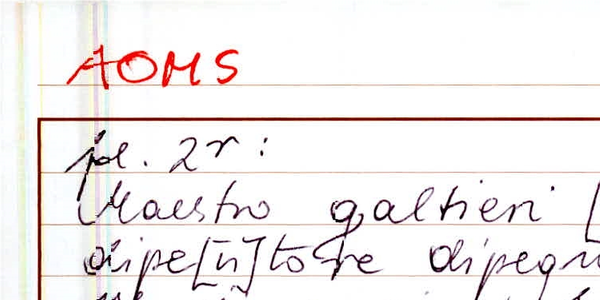 AOMS
pl. 2r:
Maestro galtieri [
dipe[n]tore dipegn